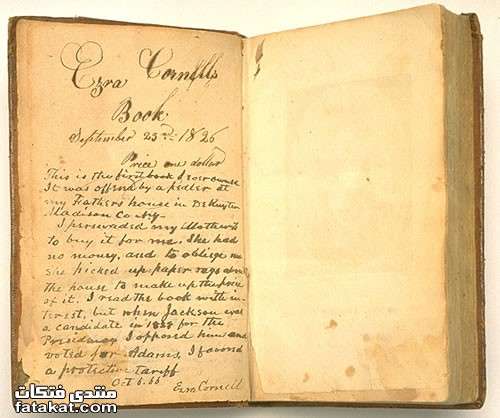 Ezra Cornell's
Book
September 23rd 1826
Price one dollar
This is the first book I ever owned
It was offered by a pedler at
my Father's house in DeRuyter
Madison Co. NY.
I perswaded my Mother
to buy it for me. She had
no money, and to oblige me
she picked up paper rags about
the house to make up the price
of it. I read the book with in-
terest, but when Jackson was
a candidate in 1828 for the
Presidency I opposed him and
voted for Adams, I favord
a protective tariff
Oct 6. 65 Ezra Cornell
منتدى فتكات
fatakat.com